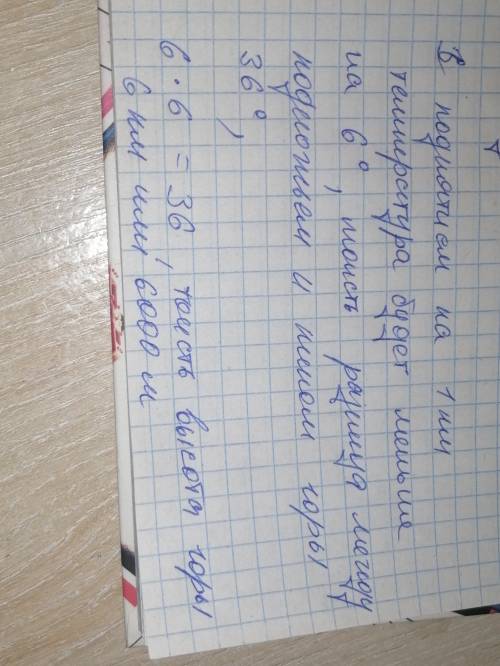 В поднятием на 1 км
температура будет меньше
на 6°, тоисть разница между
подножьем и пиком горы
36°,
6 · 6 = 36, тоисть высота горы
6 км или 6000 м